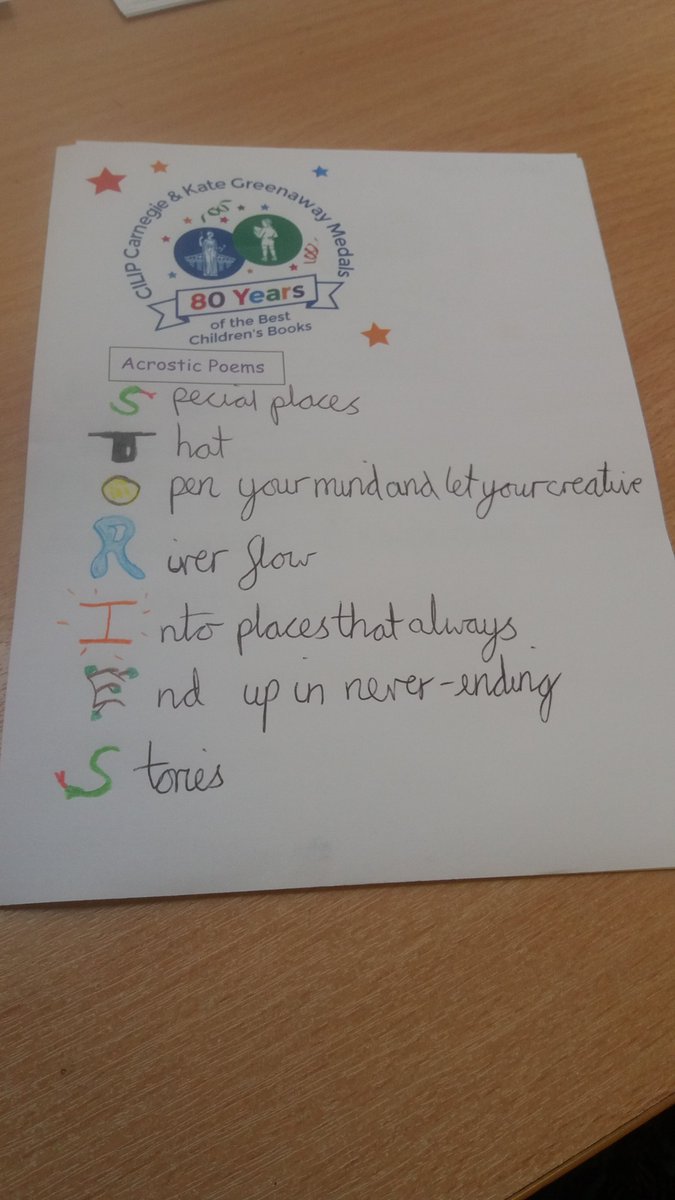 CILIP Carnegie & Kate Greenaway Medals
80 Years
of the Best
Children's Books
Acrostic Poems
Special places
That
Open your mind and let your creative
River flow
Into places that always
End up in never-ending
Stories